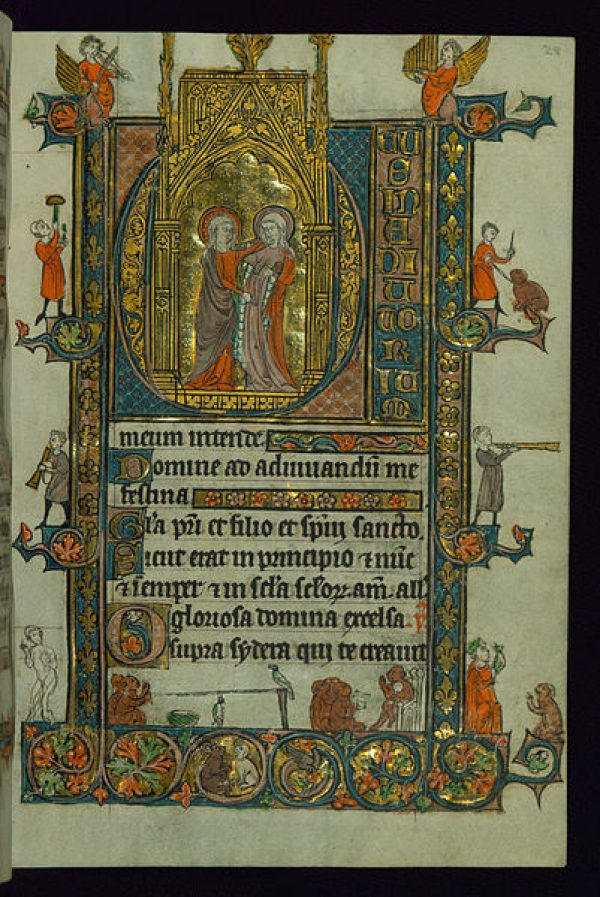 28
DEUS IN ADIUTORIUM
meum intende.
Domine ad adiuuandū me
festina
Gl'a pr̄i et filio et sp̄ui sancto.
Sicut erat in principio ⁊ nūc
⁊ semper ⁊ in sc̄la sc̄lorꝝ. am̄. all'
O gloriosa domina excelsa.
supra sydera qui te creauit